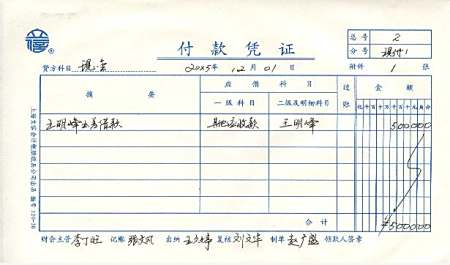 付款凭证
总号 2
分号 现付1
贷方科目 现金 20×5年12月01日 附件 1 张
摘要 应借科目 过账 金额
一级科目 二级及明细科目 千百十万千百十元角分
王明峰出差借款 其他应收款 王明峰 500000
合计 ¥500000
财会主管 李丁旺 记账 张文凤 出纳 王文婷 复核 刘文华 制单 赵广盛 领款人签章